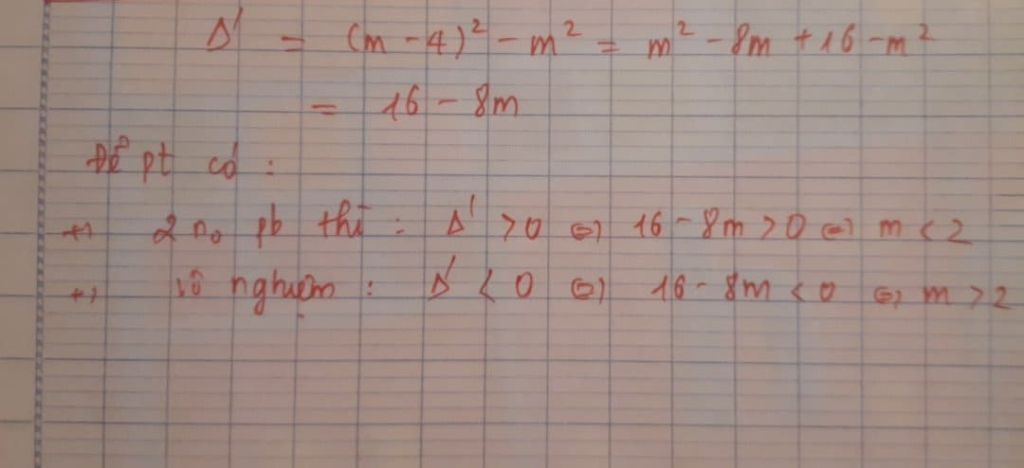 Δ' = (m - 4)² - m² = m² - 8m + 16 - m²
= 16 - 8m
Để pt có :
+) 2 no pb thì : Δ' > 0 ⇔ 16 - 8m > 0 ⇔ m < 2
+) vô nghiệm : Δ' < 0 ⇔ 16 - 8m < 0 ⇔ m > 2